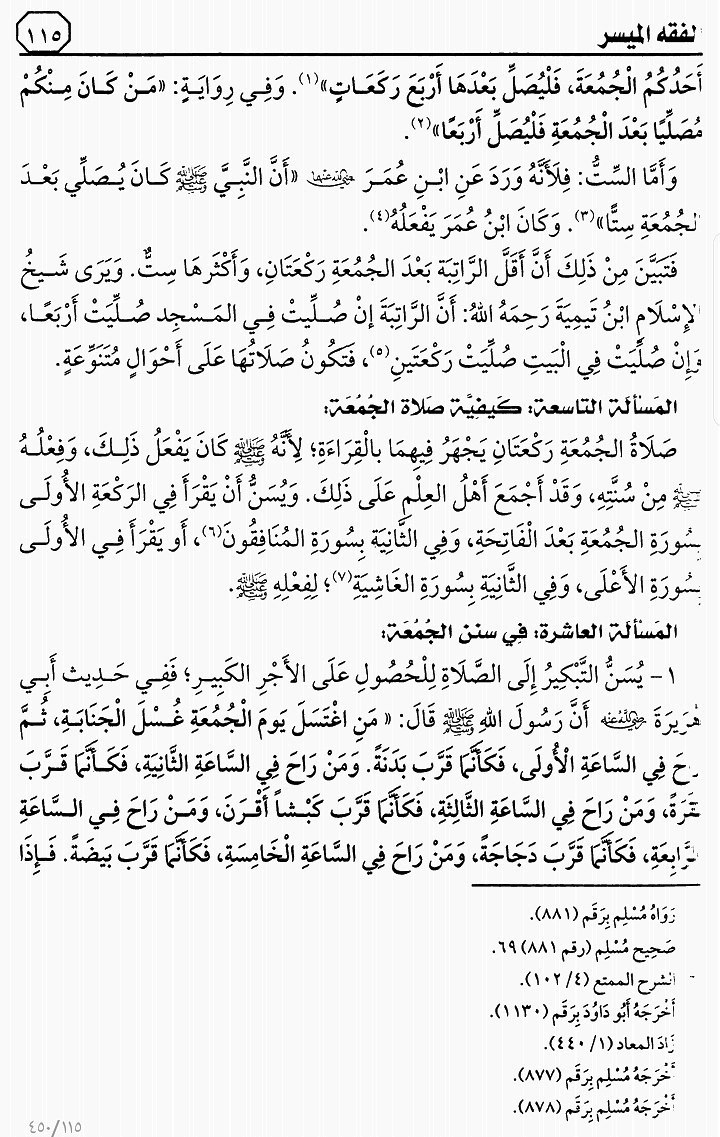 الفقه الميسر
١١٥
أَحَدُكُمُ الْجُمُعَةَ، فَلْيُصَلِّ بَعْدَهَا أَرْبَعَ رَكَعَاتٍ»(١). وَفِي رِوَايَةٍ: «مَنْ كَانَ مِنْكُمْ
مُصَلِّيًا بَعْدَ الْجُمُعَةِ فَلْيُصَلِّ أَرْبَعًا»(٢).
وَأَمَّا السِّتُّ: فِلَأَنَّهُ وَرَدَ عَنِ ابْنِ عُمَرَ رضي الله عنهما «أَنَّ النَّبِيَّ ﷺ كَانَ يُصَلِّي بَعْدَ
الجُمُعَةِ سِتًّا»(٣). وَكَانَ ابْنُ عُمَرَ يَفْعَلُهُ(٤).
فَتَبَيَّنَ مِنْ ذَلِكَ أَنَّ أَقَلَّ الرَّاتِبَةِ بَعْدَ الجُمُعَةِ رَكْعَتَانِ، وَأَكْثَرَهَا سِتٌّ. وَيَرَى شَيخُ
الإِسْلَامِ ابْنُ تَيمِيَةَ رَحِمَهُ اللهُ: أَنَّ الرَّاتِبَةَ إنْ صُلِّيتْ فِي المَسْجِد صُلِّيَتْ أَرْبَعًا،
وَإِنْ صُلِّيَتْ فِي الْبَيتِ صُلِّيَتْ رَكْعَتَينِ(٥)، فَتَكُونُ صَلَاتُهَا عَلَى أَحْوَالٍ مُتَنَوِّعَةٍ.
المَسْألة التاسعة: كيفيَّة صلاة الجُمُعَة:
صَلَاةُ الجُمُعَةِ رَكْعَتَانِ يَجْهَرُ فِيهِمَا بالْقِرَاءَةِ؛ لِأَنَّهُ ﷺ كَانَ يَفْعَلُ ذَلِكَ، وَفِعْلُهُ
ﷺ مِنْ سُنَّتِهِ، وَقَدْ أَجْمَعَ أَهْلُ العِلْمِ عَلَى ذَلِكَ. وَيُسَنُّ أَنْ يَقْرَأَ فِي الرَكْعَةِ الأُولَى
بِسُورَةِ الجُمُعَةِ بَعْدَ الْفَاتِحَةِ، وَفِي الثَّانِيَةِ بِسُورَةِ المُنَافِقُونَ(٦)، أَو يَقْرَأَ فِي الأُولَى
بِسُورَةِ الأَعْلَى، وَفِي الثَّانِيَةِ بِسُورَةِ الغَاشِيَةِ(٧)؛ لِفِعْلِهِ ﷺ.
المَسْألة العاشرة: في سنن الجُمُعَة:
١- يُسَنُّ التَّبْكِيرُ إِلَى الصَّلَاةِ لِلْحُصُولِ عَلَى الأَجْرِ الكَبِيرِ؛ فَفِي حَدِيث أَبِي
هُرَيرَةَ رضي الله عنه أَنَّ رَسُولَ اللهِ ﷺ قَالَ: «مَنِ اغْتَسَلَ يَومَ الْجُمُعَةِ غُسْلَ الْجَنَابَةِ، ثُمَّ
رَاحَ فِي السَّاعَةِ الْأُولَى، فَكَأَنَّمَا قَرَّبَ بَدَنَةً. وَمَنْ رَاحَ فِي السَّاعَةِ الثَّانِيَةِ، فَكَأَنَّمَا قَرَّبَ
بَقَرَةً، وَمَنْ رَاحَ فِي السَّاعَةِ الثَّالِثَةِ، فَكَأَنَّمَا قَرَّبَ كَبْشاً أَقْرَنَ، وَمَنْ رَاحَ فِي السَّاعَةِ
الرَّابِعَةِ، فَكَأَنَّمَا قَرَّبَ دَجَاجَةً، وَمَنْ رَاحَ فِي السَّاعَةِ الْخَامِسَةِ، فَكَأَنَّمَا قَرَّبَ بَيضَةً. فَإِذَا
رَوَاهُ مُسْلِم بِرَقَم (٨٨١).
صَحِيح مُسْلِم (رقم ٨٨١) ٦٩.
الشرح الممتع (٤/ ١٠٢).
أَخْرَجَهُ أَبُو دَاوُدَ بِرَقَم (١١٣٠).
زَادَ المعاد (١/ ٤٤٠).
أَخْرَجَهُ مُسْلِم بِرَقَم (٨٧٧).
أَخْرَجَهُ مُسْلِم بِرَقَم (٨٧٨).
٤٥٠/١١٥